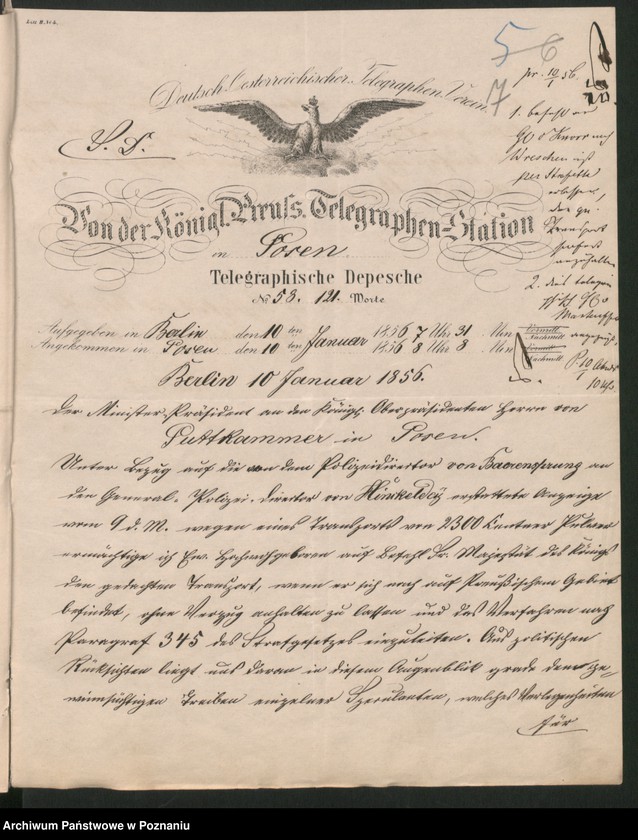 5 6
7
pr. 10/1 56.
Deutsch-Oesterreichischer Telegraphen-Verein.
S. D.
1. befehl an
nach
Wreschen
per Stafette
erlassen,
den qu.
Transport
sofort
anzuhalten
2. dies telegra
Von der Königl. Preuſs. Telegraphen-Station
in Posen
Telegraphische Depesche
No 58. 121. Worte
Aufgegeben in Berlin den 10ten Januar 1856 7 Uhr 31 Min Vormitt Nachmitt
Angekommen in Posen den 10 ten Januar 1856 8 Uhr 8 Min Vormitt Nachmitt
angezeigt,
P. 10/1 Abends
10 Uhr
Berlin 10 Januar 1856.
Der Minister-Präsident an den Königl. Oberpräsidenten Herrn von
Puttkammer in Posen.
Unter Bezug auf die von dem Polizeidirector von Baerensprung an
den General-Polizei-Director von Hinkeldey erstattete Anzeige
vom 9 d. M. wegen eines Transports von 2300 Centner Pulver
ermächtige ich Ew. Hochwohlgeboren auf Befehl Sr. Majestät des Königs
den gedachten Transport, wenn er sich noch auf Preußischem Gebiet
befindet, ohne Verzug anhalten zu lassen und das Verfahren nach
Paragraf 345 des Strafgesetzes einzuleiten. Aus politischen
Rücksichten liegt uns daran in diesem Augenblick grade dem ge-
winnsüchtigen Treiben einzelner Speculanten, welches Verlegenheiten
für
Archiwum Państwowe w Poznaniu